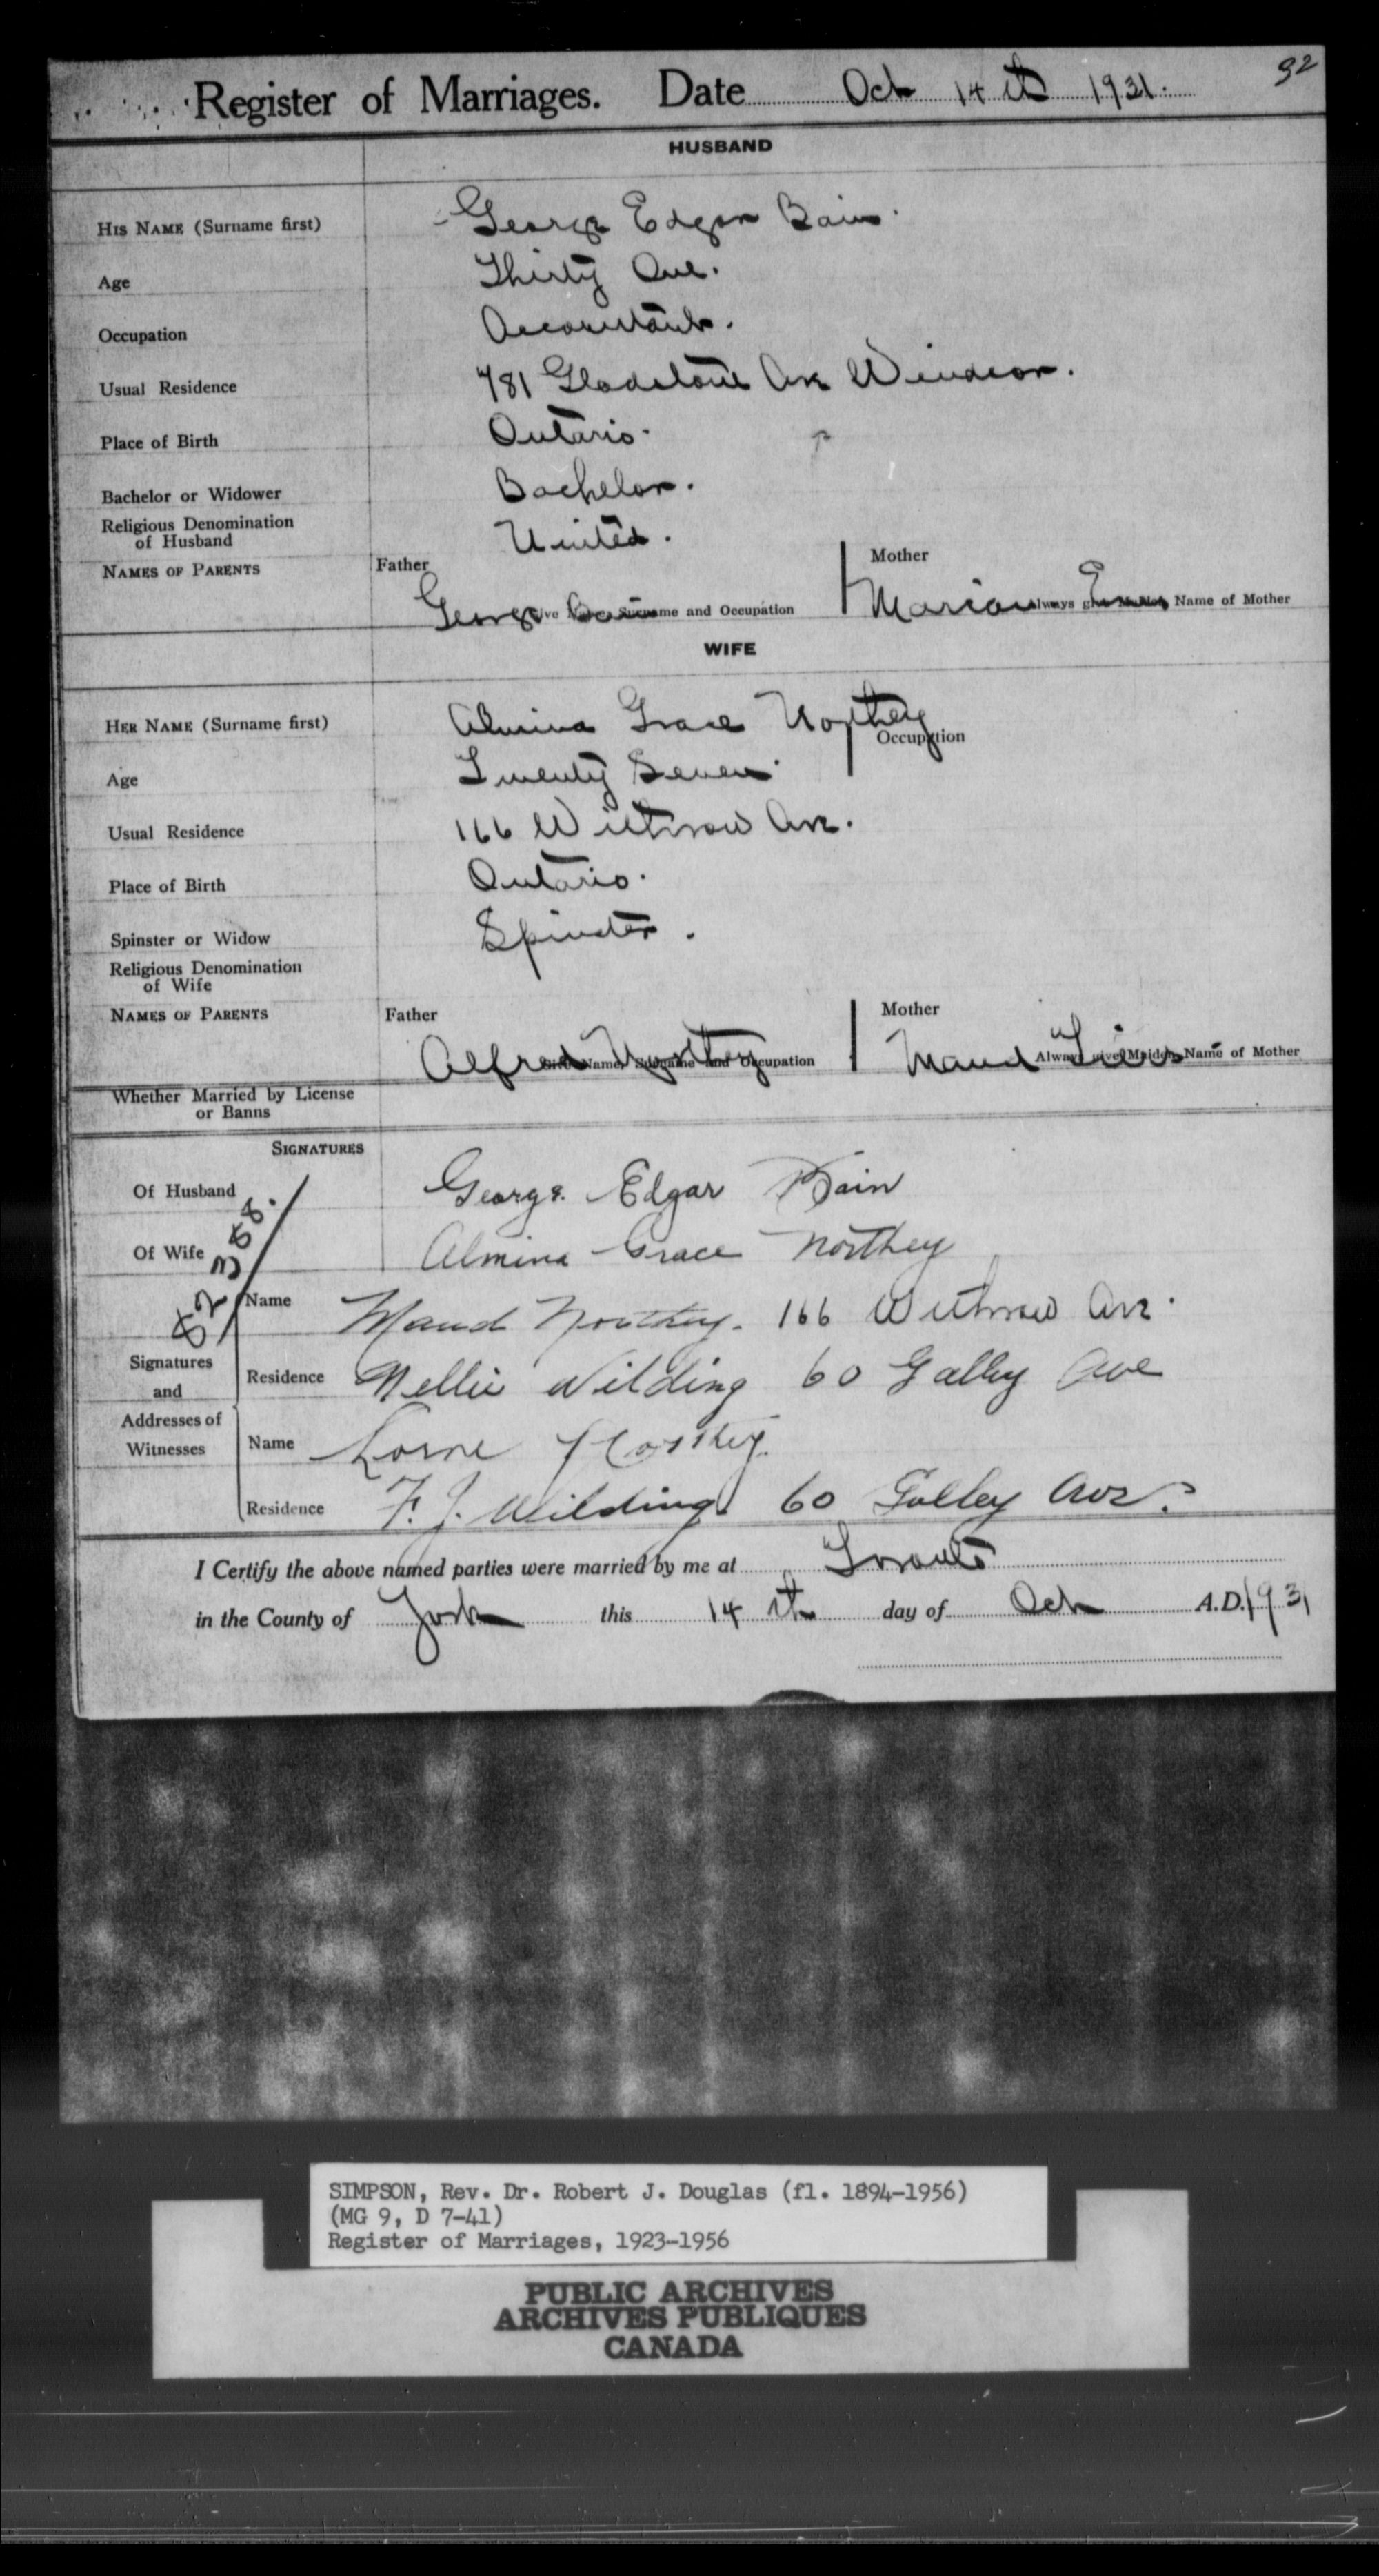 Register of Marriages. Date Oct 14th 1931. 92
HUSBAND
HIS NAME (Surname first) George Edgar Bain.
Age Thirty One.
Occupation Accountant.
Usual Residence 781 Gladstone Ave Windsor.
Place of Birth Ontario.
Bachelor or Widower Bachelor.
Religious Denomination
of Husband United.
NAMES OF PARENTS Father Mother
George Bain Give Name, Surname and Occupation Marion Always give Maiden Name of Mother
WIFE
HER NAME (Surname first) Almina Grace Northey
Occupation
Age Twenty Seven.
Usual Residence 166 Withrow Ave.
Place of Birth Ontario.
Spinster or Widow Spinster.
Religious Denomination
of Wife
NAMES OF PARENTS Father Mother
Alfred Northey Give Name, Surname and Occupation Maud Always give Maiden Name of Mother
Whether Married by License
or Banns
SIGNATURES
Of Husband George Edgar Bain
Of Wife Almina Grace Northey
82388.
Signatures
and
Addresses of
Witnesses
Name Maud Northey. 166 Withrow Ave.
Residence Nellie Wilding 60 Galley Ave
Name Lorne Northey.
Residence F. J. Wilding 60 Galley Ave.
I Certify the above named parties were married by me at Toronto
in the County of York this 14th day of Oct A.D. 1931
SIMPSON, Rev. Dr. Robert J. Douglas (fl. 1894-1956)
(MG 9, D 7-41)
Register of Marriages, 1923-1956
PUBLIC ARCHIVES
ARCHIVES PUBLIQUES
CANADA